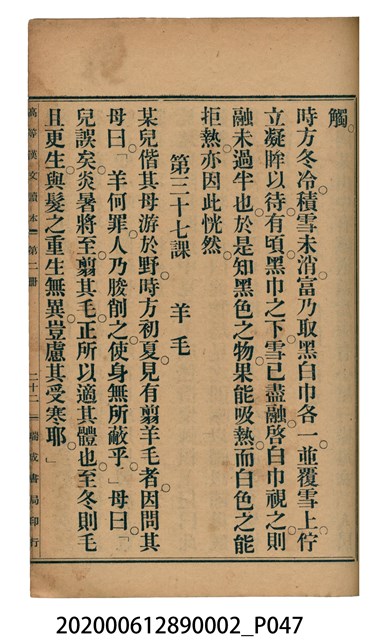 觸。
時方冬冷。積雪未消。富乃取黑白巾各一。並覆雪上。佇
立凝眸以待。有頃。黑巾之下。雪已盡融。啓白巾視之。則
融未過半也。於是知黑色之物。果能吸熱。而白色之能
拒熱。亦因此恍然。
第三十七課　羊毛
某兒偕其母游於野。時方初夏。見有翦羊毛者。因問其
母曰「羊何罪。人乃朘削之。使身無所蔽乎。」母曰「
兒誤矣。炎暑將至。翦其毛。正所以適其體也。至冬則毛
且更生。與髮之重生無異。豈慮其受寒耶。」
高等漢文讀本 第二册 二十二 瑞成書局印行
202000612890002_P047